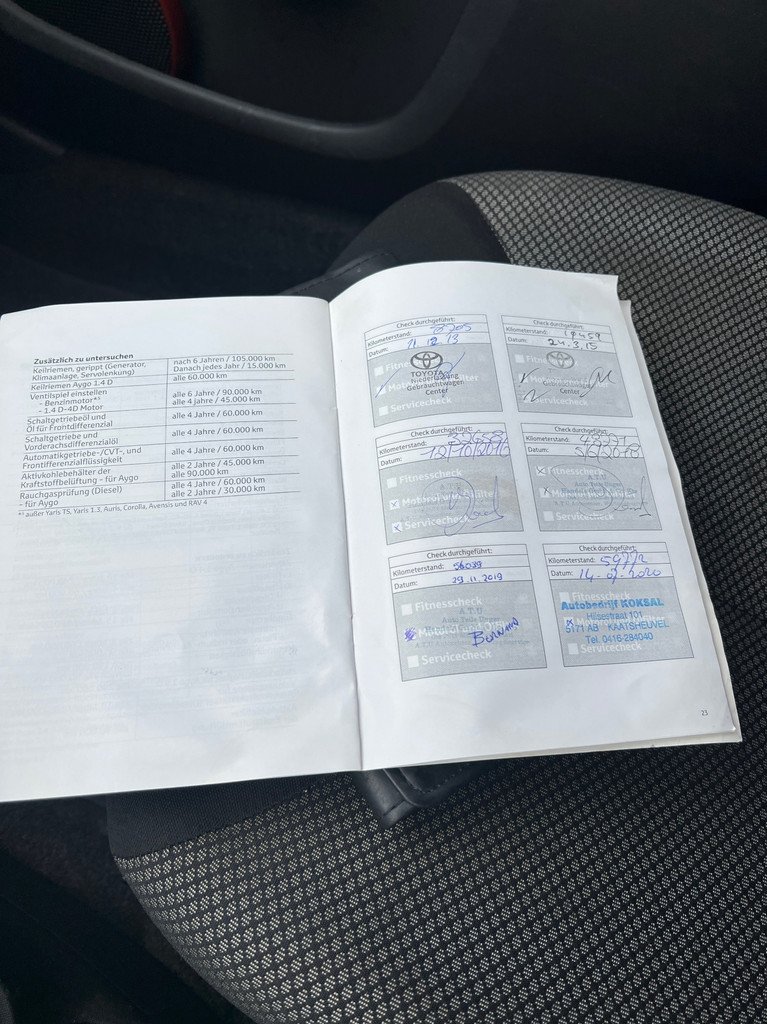 Zusätzlich zu untersuchen
Keilriemen, gerippt (Generator, Klimaanlage, Servolenkung) nach 6 Jahren / 105.000 km Danach jedes Jahr / 15.000 km
Keilriemen Aygo 1.4 D alle 60.000 km
Ventilspiel einstellen
- Benzinmotor** alle 6 Jahre / 90.000 km
- 1.4 D-4D Motor alle 4 Jahre / 45.000 km
Schaltgetriebeöl und Öl für Frontdifferenzial alle 4 Jahre / 60.000 km
Schaltgetriebe und Vorderachsdifferenzialöl alle 4 Jahre / 60.000 km
Automatikgetriebe-/CVT-, und Frontdifferenzialflüssigkeit alle 4 Jahre / 60.000 km
Aktivkohlebehälter der Kraftstoffbelüftung – für Aygo alle 2 Jahre / 45.000 km alle 90.000 km
Rauchgasprüfung (Diesel) alle 4 Jahre / 60.000 km
- für Aygo alle 2 Jahre / 30.000 km
** außer Yaris TS, Yaris 1.3, Auris, Corolla, Avensis und RAV 4
Check durchgeführt:
Kilometerstand:
Datum: 11.12.13
TOYOTA
Niederlassung
Gebrauchtwagen
Center
Servicecheck
Check durchgeführt:
Kilometerstand: 19459
Datum: 24.3.15
Gebrauchtwagen
Center
Servicecheck
Check durchgeführt:
Kilometerstand:
Datum: 12/10/2016
Fitnesscheck
A.T.U
Servicecheck
Check durchgeführt:
Kilometerstand:
Datum:
Fitnesscheck
A.T.U
Servicecheck
Check durchgeführt:
Kilometerstand: 56039
Datum: 29.11.2019
Fitnesscheck
A.T.U
Auto Teile Unger
Servicecheck
Check durchgeführt:
Kilometerstand: 59772
Datum: 14-07-2020
Fitnesscheck
Autobedrijf KOKSAL
Hilsestraat 101
5171 AB KAATSHEUVEL
Tel. 0416-284040
Servicecheck
23